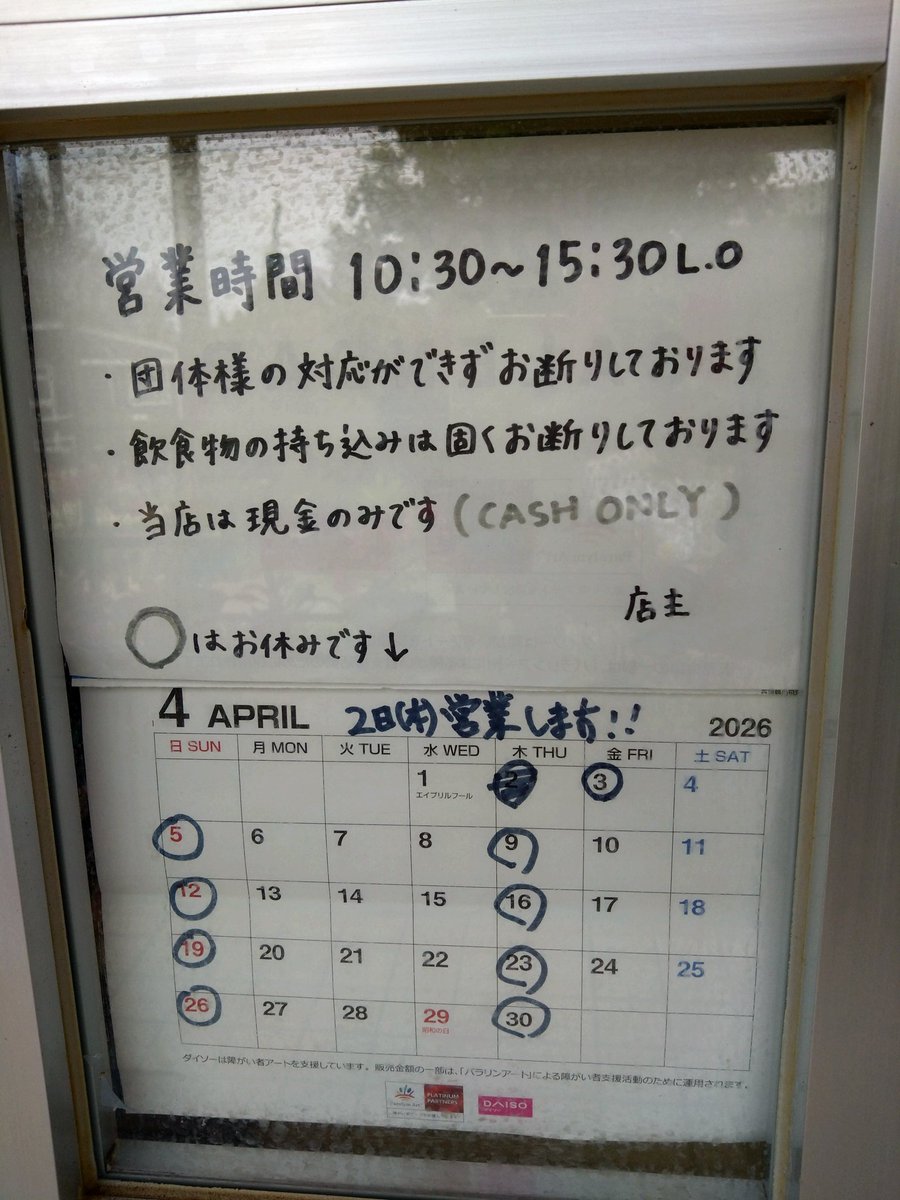 営業時間 10:30～15:30 L.O
・団体様の対応ができずお断りしております
・飲食物の持ち込みは固くお断りしております
・当店は現金のみです(CASH ONLY)
店主
◯はお休みです↓
4 APRIL 2日(木)営業します!! 2026
日 SUN 月 MON 火 TUE 水 WED 木 THU 金 FRI 土 SAT
1 2 3 4
エイプリルフール
5 6 7 8 9 10 11
12 13 14 15 16 17 18
19 20 21 22 23 24 25
26 27 28 29 30
昭和の日
ダイソーは障がい者アートを支援しています。販売金額の一部は、「パラリンアート」による障がい者支援活動のために運用されます。
Paralym Art PLATINUM PARTNERS DAISO
ダイソー